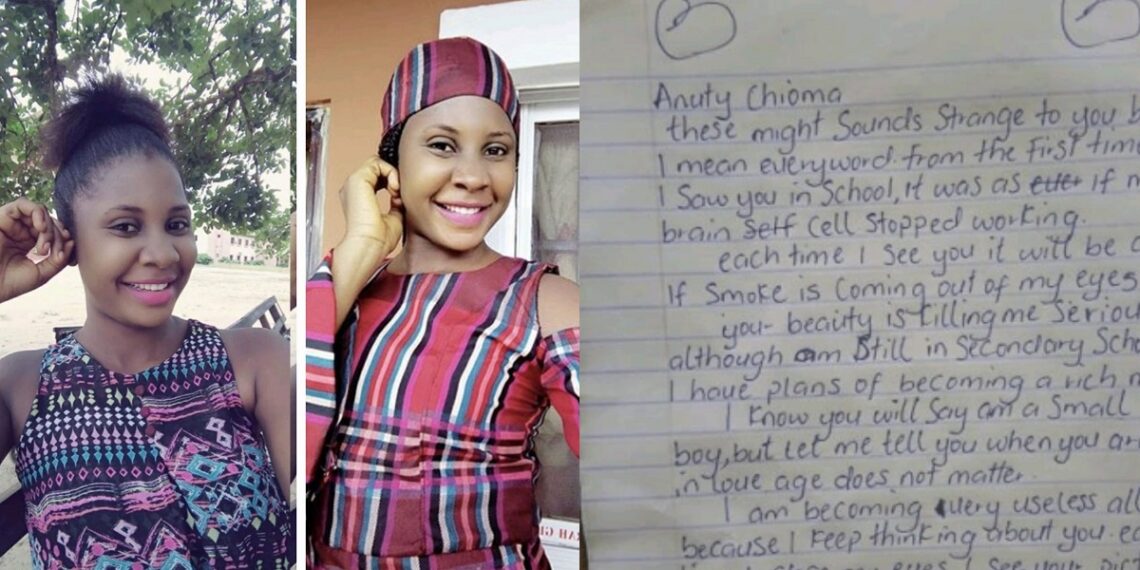 Anuty Chioma
these might Sounds Strange to you b
I mean everyword from the first time
I Saw you in School, it was as if m
brain Cell Stopped working.
each time I See you it will be a
If Smoke is Coming out of my eyes
your beauty is killing me Seriou
although am Still in Secondary Scho
I have plans of becoming a rich m
I know you will Say am a Small
boy, but Let me tell you when you ar
in love age does not matter.
I am becoming very useless all
because I Keep thinking about you. ea
my eyes I See your pic